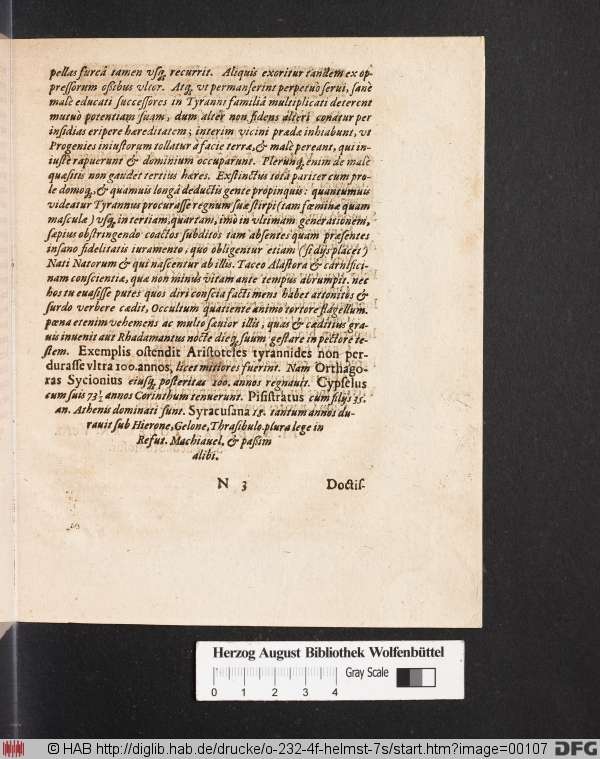 pellas furcâ tamen vsq́; recurrit. Aliquis exoritur tandem ex op-
pressorum oßibus vltor. Atq́; vt permanserint perpetuo serui, sanè
malè educati successores in Tyranni familiâ multiplicati deterent
mutuò potentiam suam, dum alter non fidens alteri conatur per
insidias eripere hæreditatem; interim vicini prædæ inhiabunt, vt
Progenies iniustorum tollatur à facie terræ, & malè pereant, qui in-
iustè rapuerunt & dominium occuparunt. Plerunq́; enim de malè
quæsitis non gaudet tertius hæres. Exstinctus tota pariter cum pro-
le domoq́;, & quamuis longâ deductis gente propinquis: quantumuis
videatur Tyrannus procurasse regnum suæ stirpi (tam fœmineæ quam
masculæ) vsq́; in tertiam, quartam, imò in vltimam generationem,
sæpius obstringendo coactos subditos tam absentes quam præsentes
insano fidelitatis iuramento, quo obligentur etiam (si dijs placet)
Nati Natorum & qui nascentur ab illis. Taceo Alastora & carnifici-
nam conscientiæ, quæ non minùs vitam ante tempus abrumpit. nec
hos tu euasisse putes quos diri conscia facti mens habet attonitos &
surdo verbere cædit, Occultum quatiente animo tortore flagellum.
pœna etenim vehemens ac multo sæuior illis, quas & cæditius gra-
uis inuenit aut Rhadamantus nocte dieq́; suum gestare in pectore te-
stem. Exemplis ostendit Aristoteles tyrannides non per-
durasse vltra 100. annos, licet mitiores fuerint. Nam Orthago-
ras Sycionius eiusq́; posteritas 100. annos regnauit. Cypselus
cum suis 73½ annos Corinthum tenuerunt. Pisistratus cum filijs 35.
an. Athenis dominati sunt. Syracusana 15. tantum annos du-
rauit sub Hierone, Gelone, Thrasibulo. plura lege in
Refut. Machiauel. & paßim
alibi.
N 3 Doctis-
Herzog August Bibliothek Wolfenbüttel
Gray Scale
0 1 2 3 4
© HAB http://diglib.hab.de/drucke/o-232-4f-helmst-7s/start.htm?image=00107 DFG